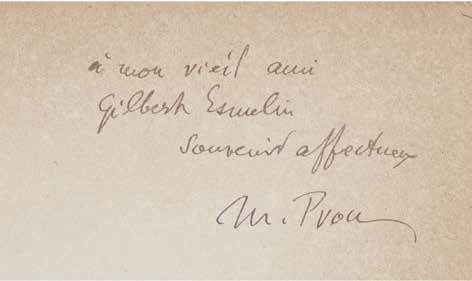 à mon vieil ami
Gilbert Esmelin
souvenir affectueux
M. Prou